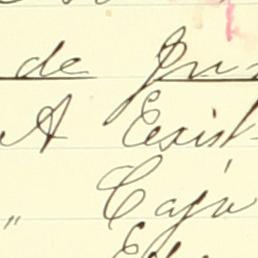 de Jun
A Exist
" Caja